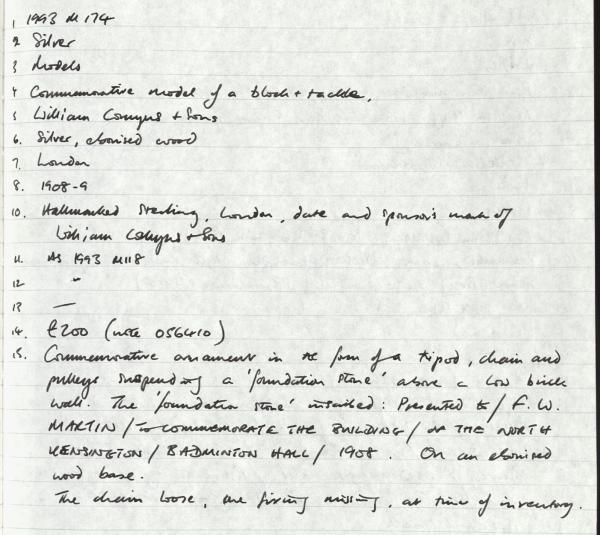 1 1993 M 174
2 Silver
3 Models
4 Commemorative model of a block + tackle.
5 William Comyns + Sons
6. Silver, ebonised wood
7. London
8. 1908-9
10. Hallmarked Sterling, London, date and sponsor's mark of
William Comyns + Sons
11. As 1993 M118
12 "
13 —
14. £200 (note 056410)
15. Commemorative ornament in the form of a tripod, chain and
pulleys suspending a 'foundation stone' above a low brick
wall. The 'foundation stone' inscribed: Presented to / F. W.
MARTIN / TO COMMEMORATE THE BUILDING / OF THE NORTH
KENSINGTON / BADMINTON HALL / 1908. On an ebonised
wood base.
The chain loose, one fixing missing, at time of inventory.